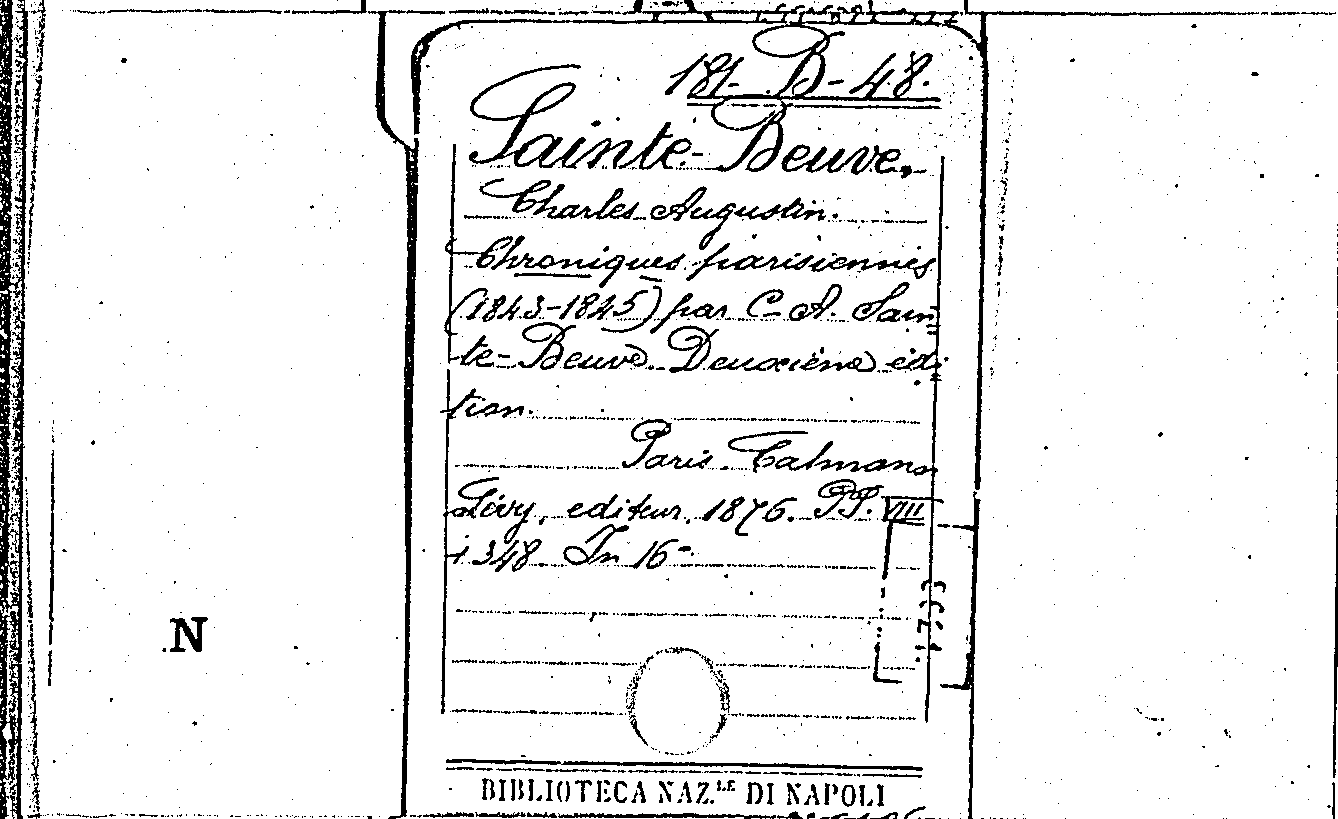 181-B-48.
Sainte-Beuve,
Charles Augustin.
Chroniques parisiennes
(1843-1845) par C-A. Sain=
te-Beuve. Deuxième edi=
tion.
Paris. Calmann
Lévy, editeur. 1876. PP. VIII
i 348. In 16-
N
BIBLIOTECA NAZ.LE DI NAPOLI